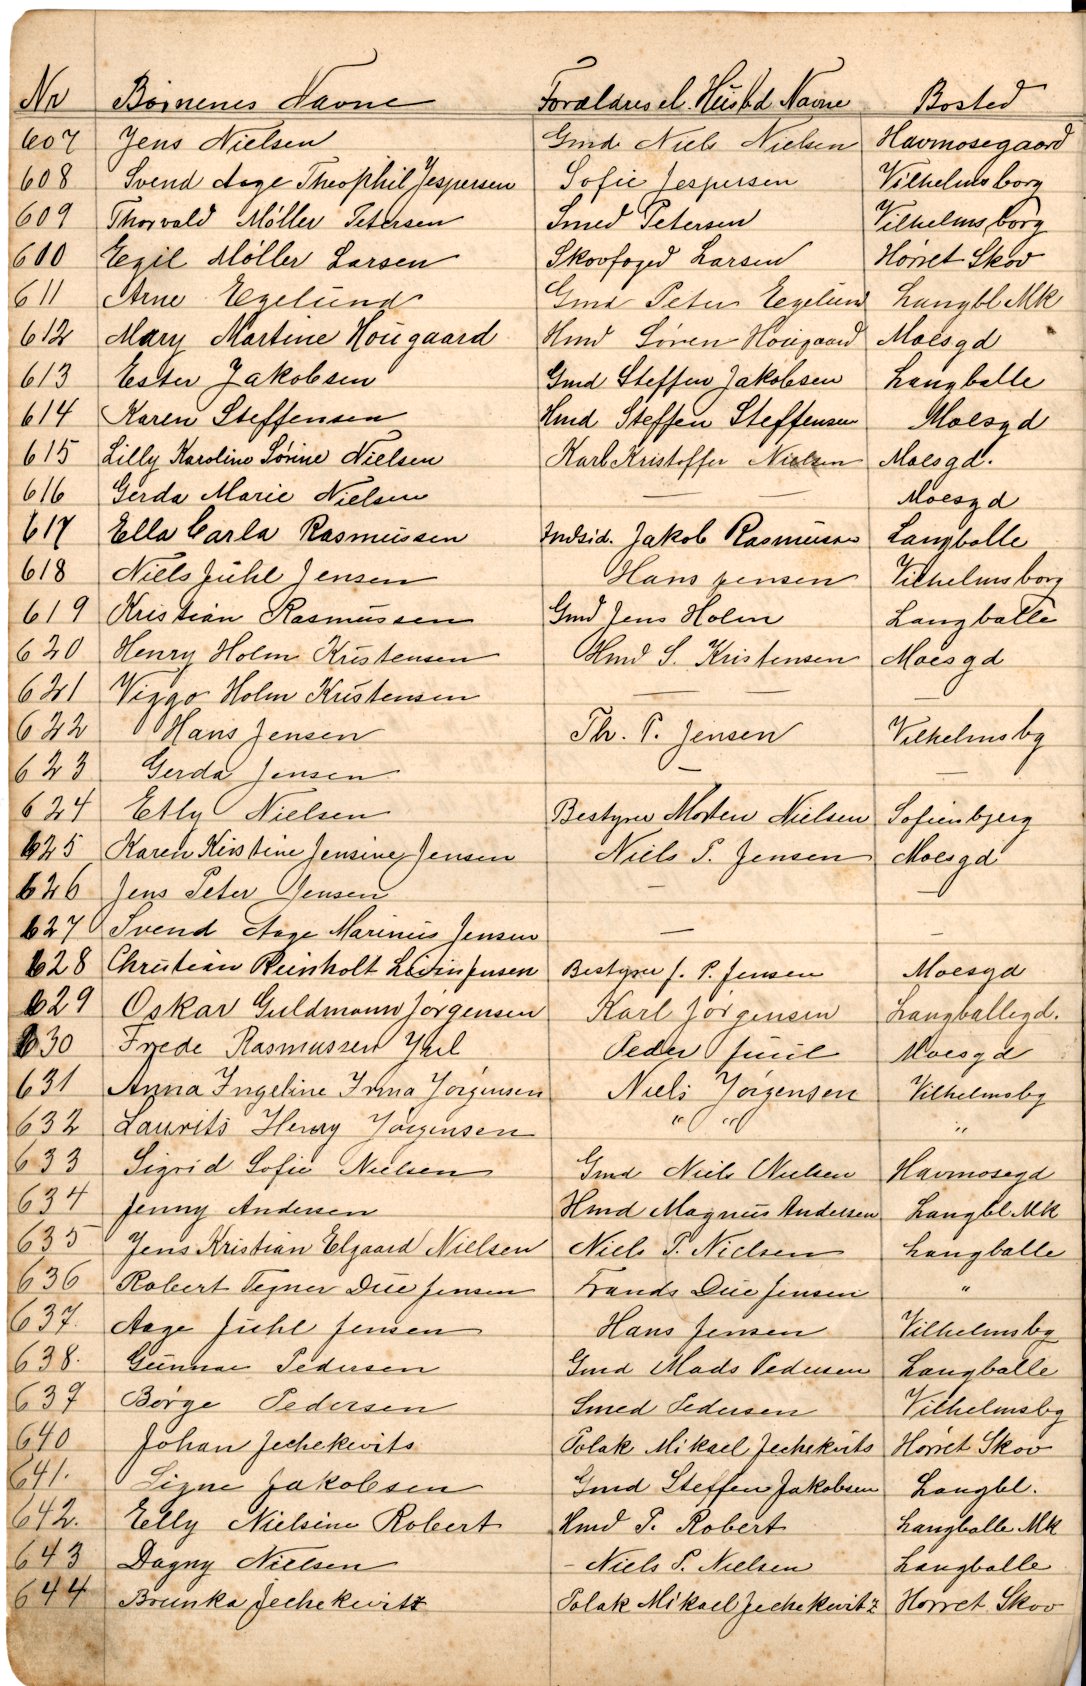 Nr Børnenes Navne Forældres el. Husbd Navne Bosted
607 Jens Nielsen Gmd Niels Nielsen Havmosegaard
608 Svend Aage Theophil Jespersen Sofie Jespersen Vilhelmsborg
609 Thorvald Møller Petersen Smed Petersen Vilhelmsborg
600 Egil Møller Larsen Skovfoged Larsen Hørret Skov
611 Arne Egelund Gmd Peter Egelund Langbl Mk
612 Mary Martine Hougaard Hmd Søren Hougaard Moesgd
613 Ester Jakobsen Gmd Steffen Jakobsen Langballe
614 Karen Steffensen Hmd Steffen Steffensen Moesgd
615 Lilly Karoline Sørine Nielsen Karl Kristoffer Nielsen Moesgd.
616 Gerda Marie Nielsen — — Moesgd
617 Ella Carla Rasmussen Indsid. Jakob Rasmussen Langballe
618 Niels Juhl Jensen Hans Jensen Vilhelmsborg
619 Kristian Rasmussen Gmd Jens Holm Langballe
620 Henry Holm Kristensen Hmd S. Kristensen Moesgd
621 Viggo Holm Kristensen — — —
622 Hans Jensen Th. P. Jensen Vilhelmsbg
623 Gerda Jensen — —
624 Elly Nielsen Bestyrer Morten Nielsen Sofienbjerg
625 Karen Kirstine Jensine Jensen Niels P. Jensen Moesgd
626 Jens Peter Jensen — —
627 Svend Aage Marinus Jensen — —
628 Christian Reinholt Jensen Bestyrer J. P. Jensen Moesgd
629 Oskar Guldmann Jørgensen Karl Jørgensen Langballegd.
630 Frede Rasmussen Juel Peder Juul Moesgd
631 Anna Ingeline Irma Jørgensen Niels Jørgensen Vilhelmsbg
632 Laurits Henry Jørgensen " " "
633 Sigrid Sofie Nielsen Gmd Niels Nielsen Havmosegd
634 Jenny Andersen Hmd Magnus Andersen Langbl Mk
635 Jens Kristian Elgaard Nielsen Niels P. Nielsen Langballe
636 Robert Tegner Due Jensen Frands Due Jensen "
637. Aage Juhl Jensen Hans Jensen Vilhelmsbg
638. Gunnar Pedersen Gmd Mads Pedersen Langballe
639 Børge Pedersen Smed Pedersen Vilhelmsbg
640 Johan Jechekevits Polak Mikael Jechekvits Hørret Skov
641. Signe Jakobsen Gmd Steffen Jakobsen Langbl.
642. Elly Nielsine Robert Hmd P. Robert Langballe Mk
643 Dagny Nielsen - Niels P. Nielsen Langballe
644 Brunka Jechekevitz Polak Mikael Jechekevitz Hørret Skov